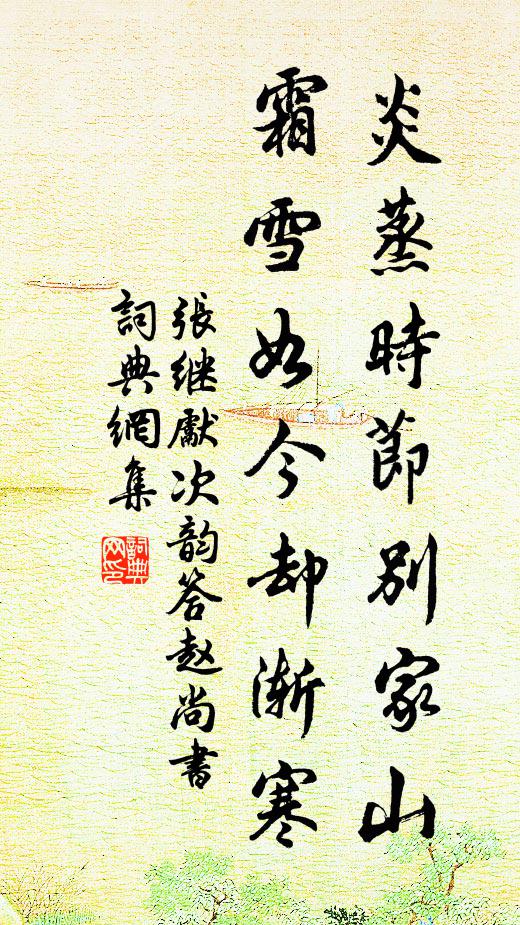 炎蒸時節別家山
霜雪如今却漸寒
張继獻次韵答赵尚書
詞典網集
詞典网印